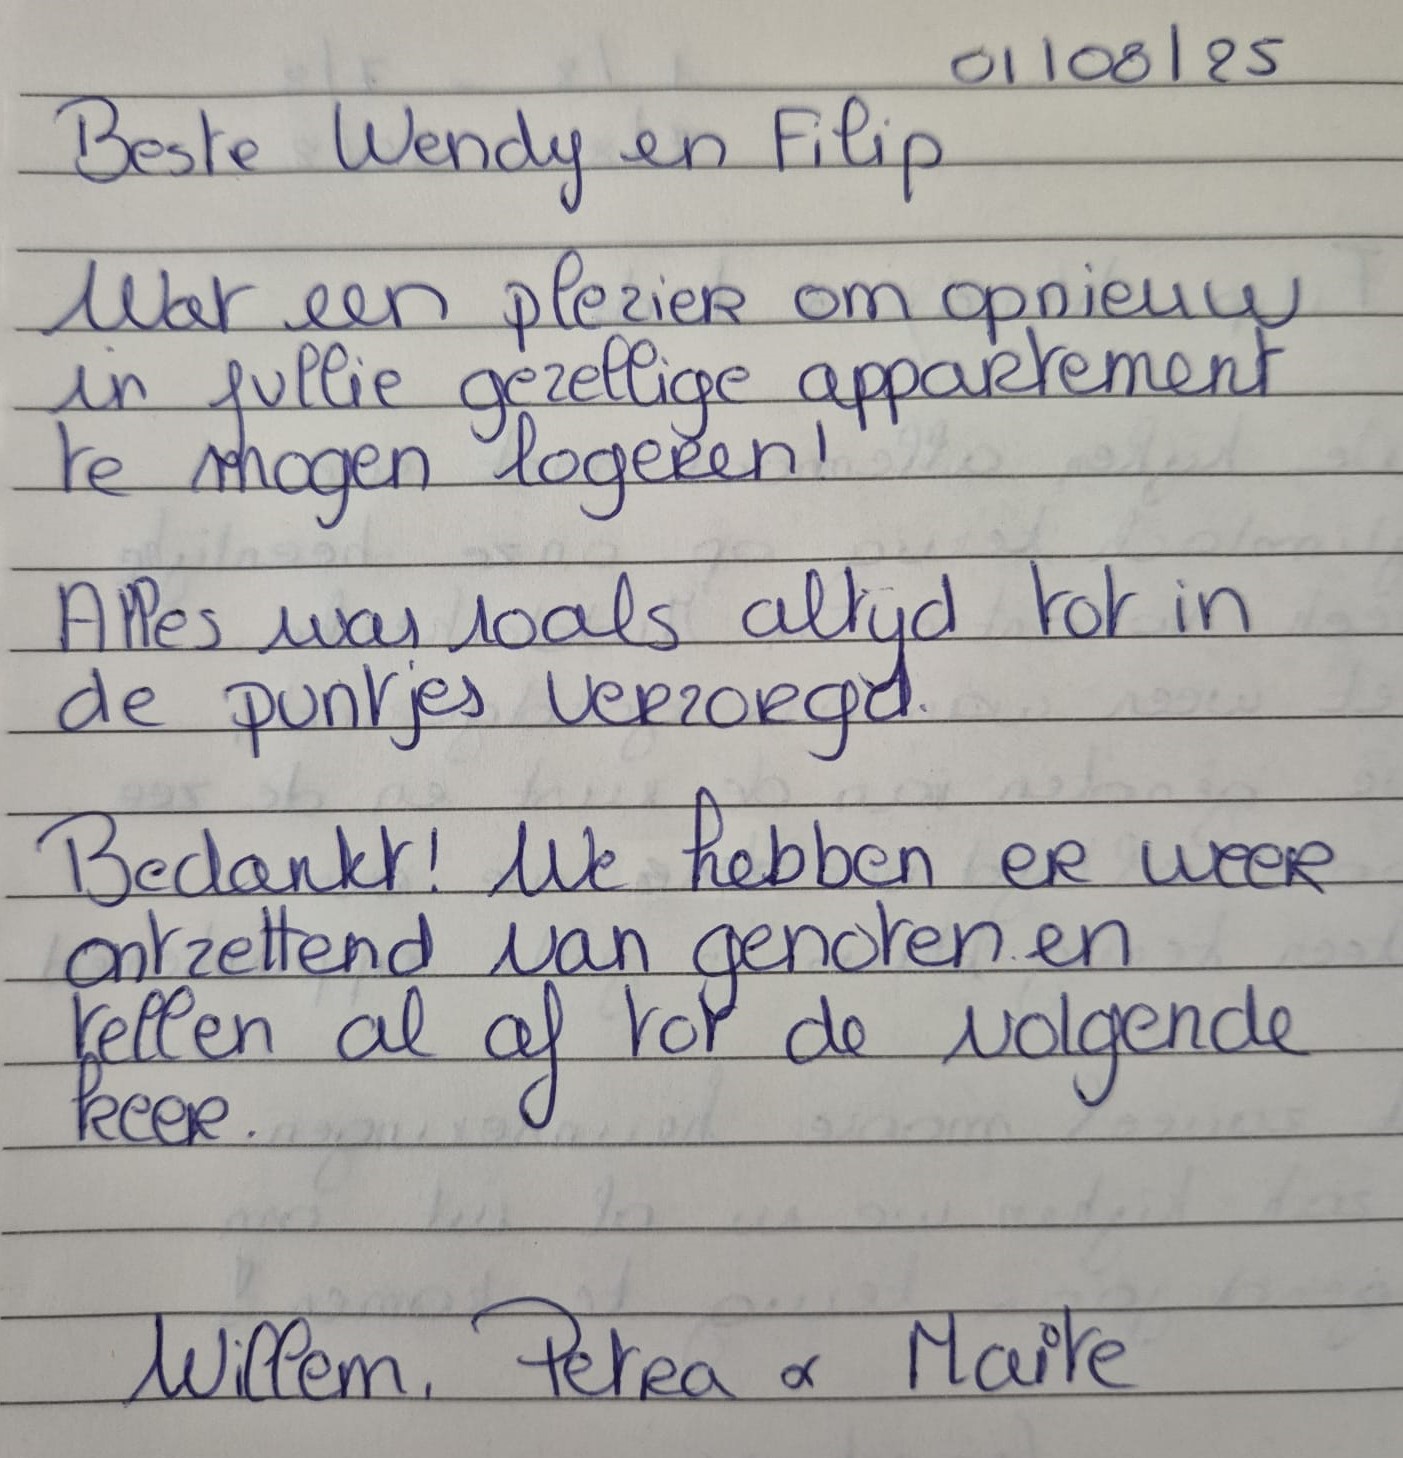 01/08/25
Beste Wendy en Filip
Wat een plezier om opnieuw
in jullie gezellige appartement
te mogen logeren!
Alles was zoals altijd tot in
de puntjes verzorgd.
Bedankt! We hebben er weer
ontzettend van genoten en
tellen al af tot de volgende
keer.
Willem, Petra & Maite